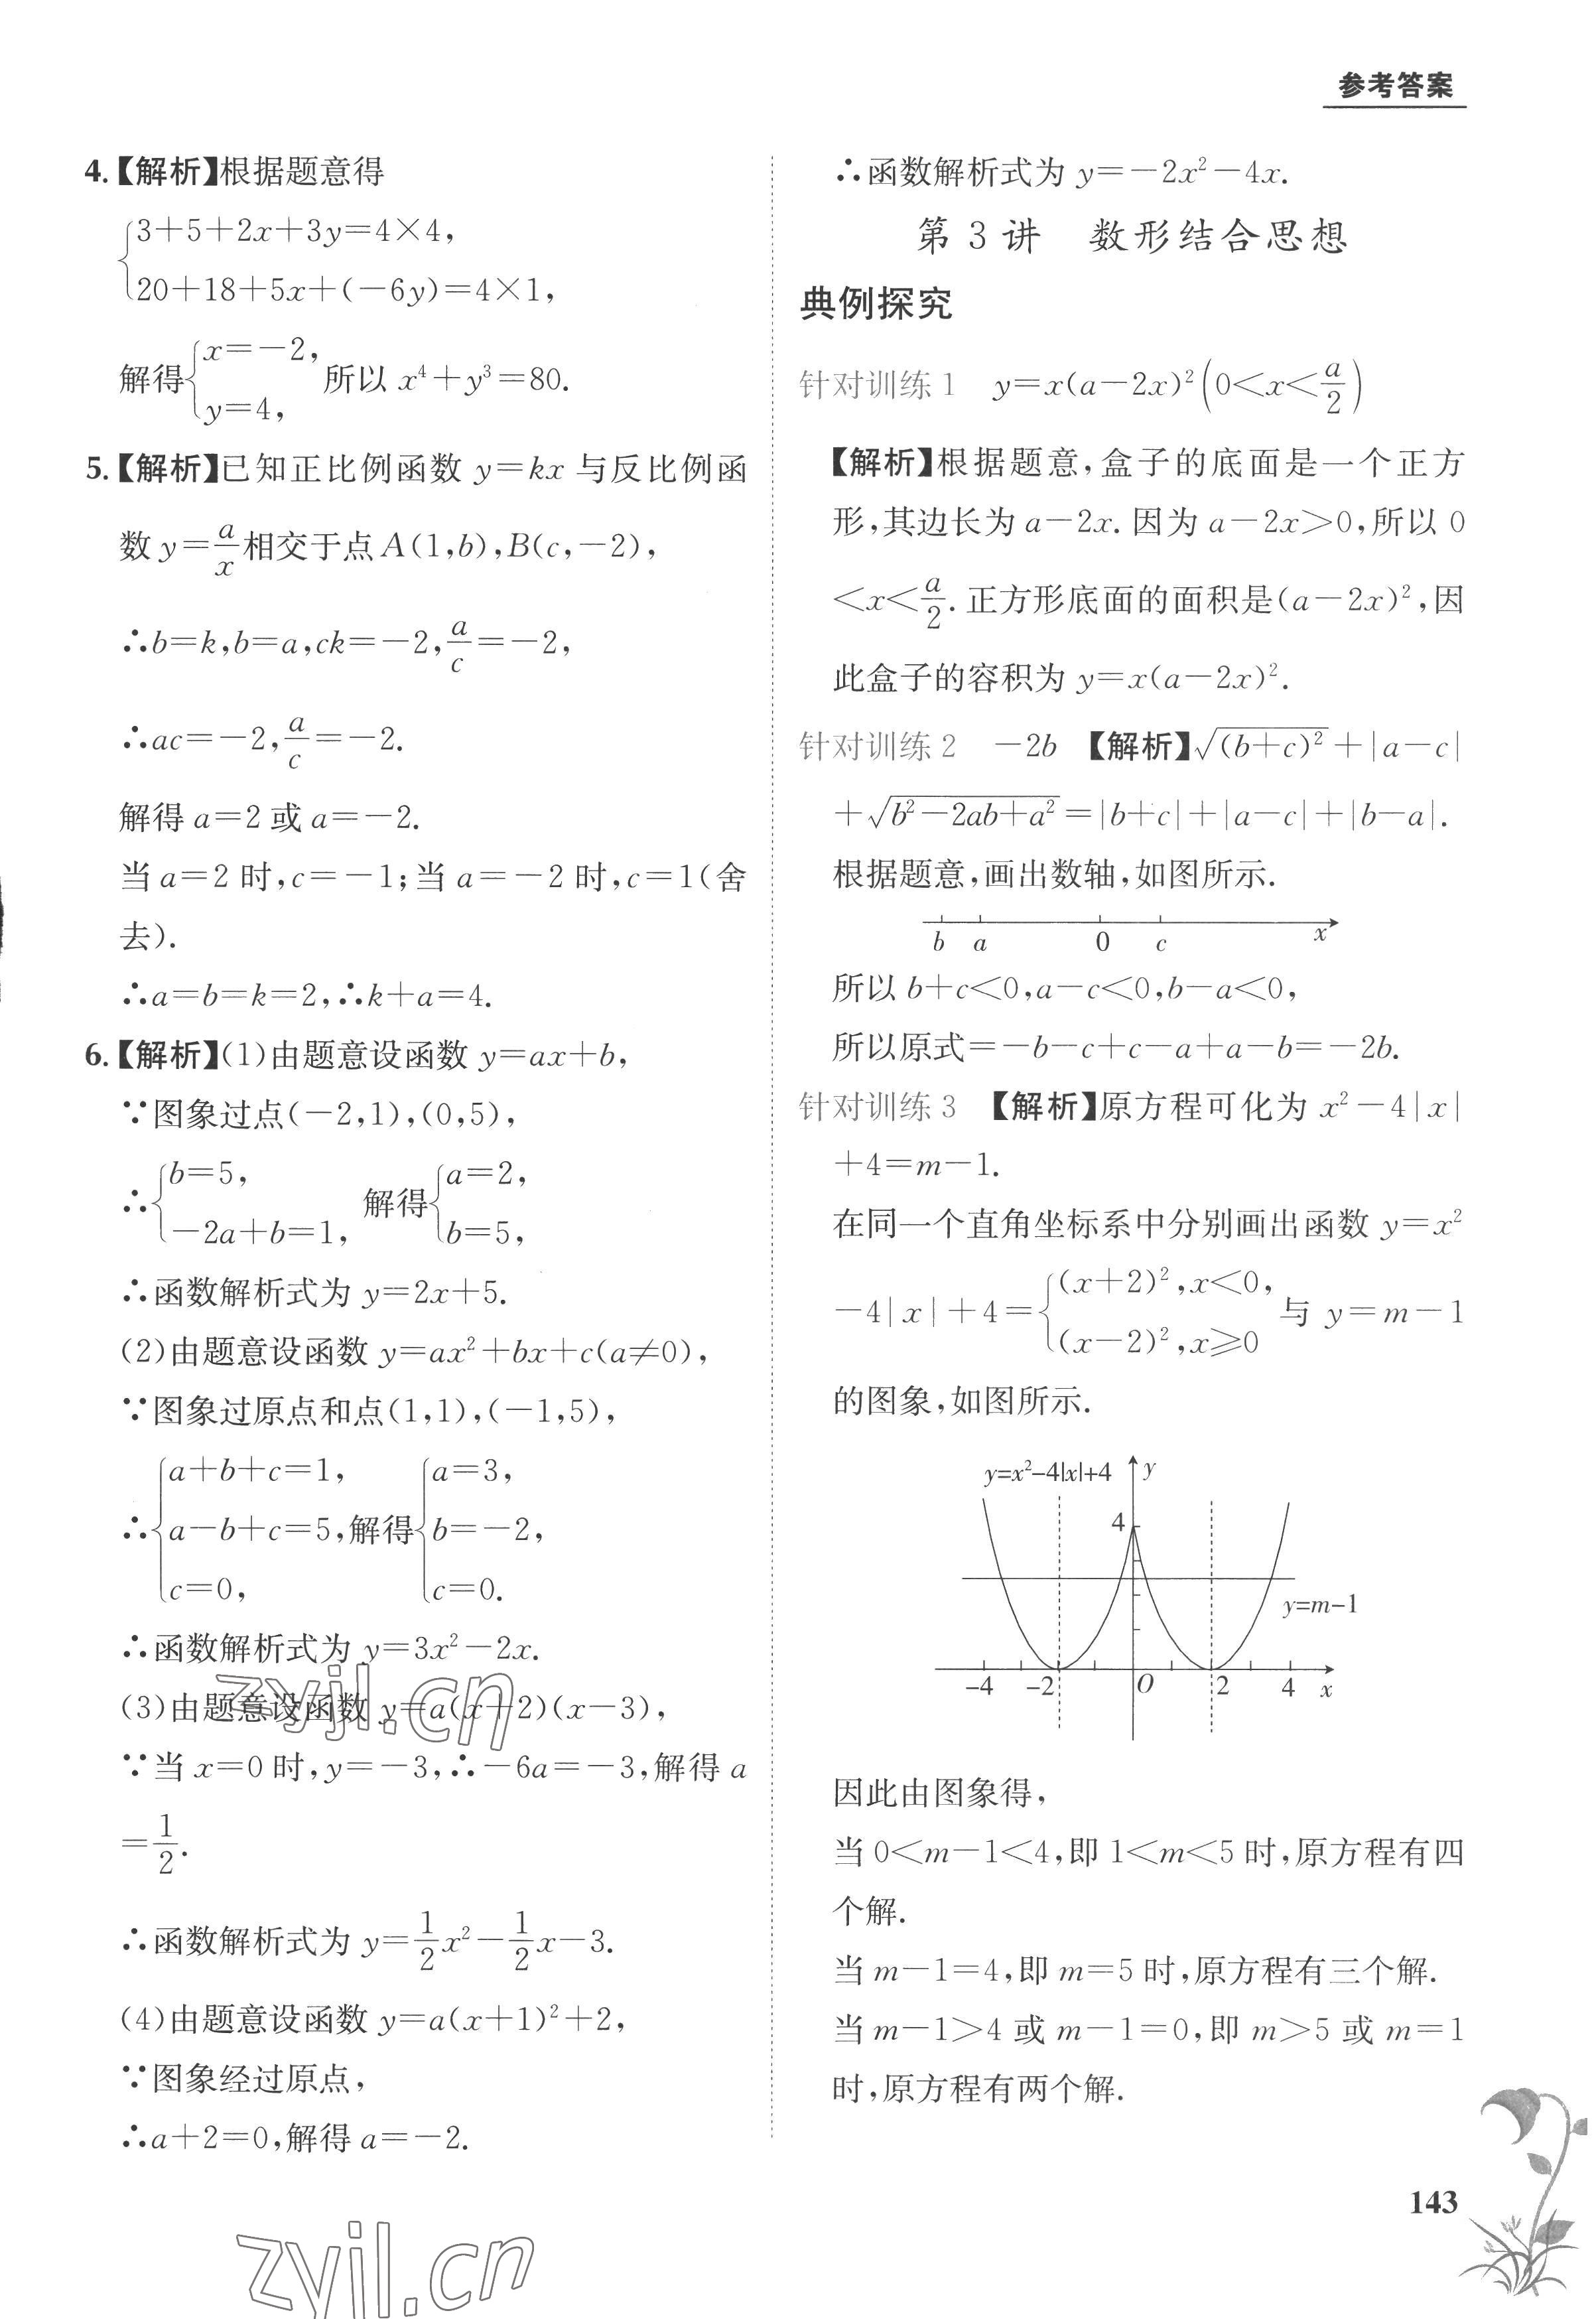 参考答案
4.【解析】根据题意得
{3+5+2x+3y=4×4,
20+18+5x+(-6y)=4×1,
解得{x=-2, y=4, 所以 x⁴+y³=80.
5.【解析】已知正比例函数 y=kx 与反比例函
数 y=a/x 相交于点 A(1,b),B(c,-2),
∴b=k,b=a,ck=-2,a/c=-2,
∴ac=-2,a/c=-2.
解得 a=2 或 a=-2.
当 a=2 时,c=-1;当 a=-2 时,c=1(舍
去).
∴a=b=k=2,∴k+a=4.
6.【解析】(1)由题意设函数 y=ax+b,
∵图象过点(-2,1),(0,5),
∴{b=5, -2a+b=1, 解得{a=2, b=5,
∴函数解析式为 y=2x+5.
(2)由题意设函数 y=ax²+bx+c(a≠0),
∵图象过原点和点(1,1),(-1,5),
∴{a+b+c=1, a-b+c=5, c=0, 解得{a=3, b=-2, c=0.
∴函数解析式为 y=3x²-2x.
(3)由题意设函数 y=a(x+2)(x-3),
∵当 x=0 时,y=-3,∴-6a=-3,解得 a
=1/2.
∴函数解析式为 y=1/2x²-1/2x-3.
(4)由题意设函数 y=a(x+1)²+2,
∵图象经过原点,
∴a+2=0,解得 a=-2.
∴函数解析式为 y=-2x²-4x.
第 3 讲 数形结合思想
典例探究
针对训练 1 y=x(a-2x)²(0<x<a/2)
【解析】根据题意,盒子的底面是一个正方
形,其边长为 a-2x. 因为 a-2x>0,所以 0
<x<a/2. 正方形底面的面积是(a-2x)²,因
此盒子的容积为 y=x(a-2x)².
针对训练 2 -2b 【解析】√(b+c)²+|a-c|
+√b²-2ab+a²=|b+c|+|a-c|+|b-a|.
根据题意,画出数轴,如图所示.
b a 0 c x
所以 b+c<0,a-c<0,b-a<0,
所以原式=-b-c+c-a+a-b=-2b.
针对训练 3 【解析】原方程可化为 x²-4|x|
+4=m-1.
在同一个直角坐标系中分别画出函数 y=x²
-4|x|+4={(x+2)²,x<0, (x-2)²,x≥0 与 y=m-1
的图象,如图所示.
y=x²-4|x|+4 y
4
y=m-1
-4 -2 O 2 4 x
因此由图象得,
当 0<m-1<4,即 1<m<5 时,原方程有四
个解.
当 m-1=4,即 m=5 时,原方程有三个解.
当 m-1>4 或 m-1=0,即 m>5 或 m=1
时,原方程有两个解.
143
zyjl.cn
zyjl.cn